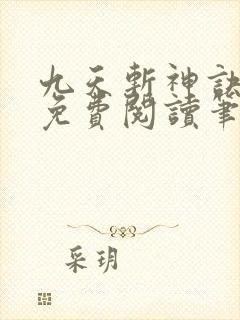 九天斬神訣
免費閱讀筆
采玥